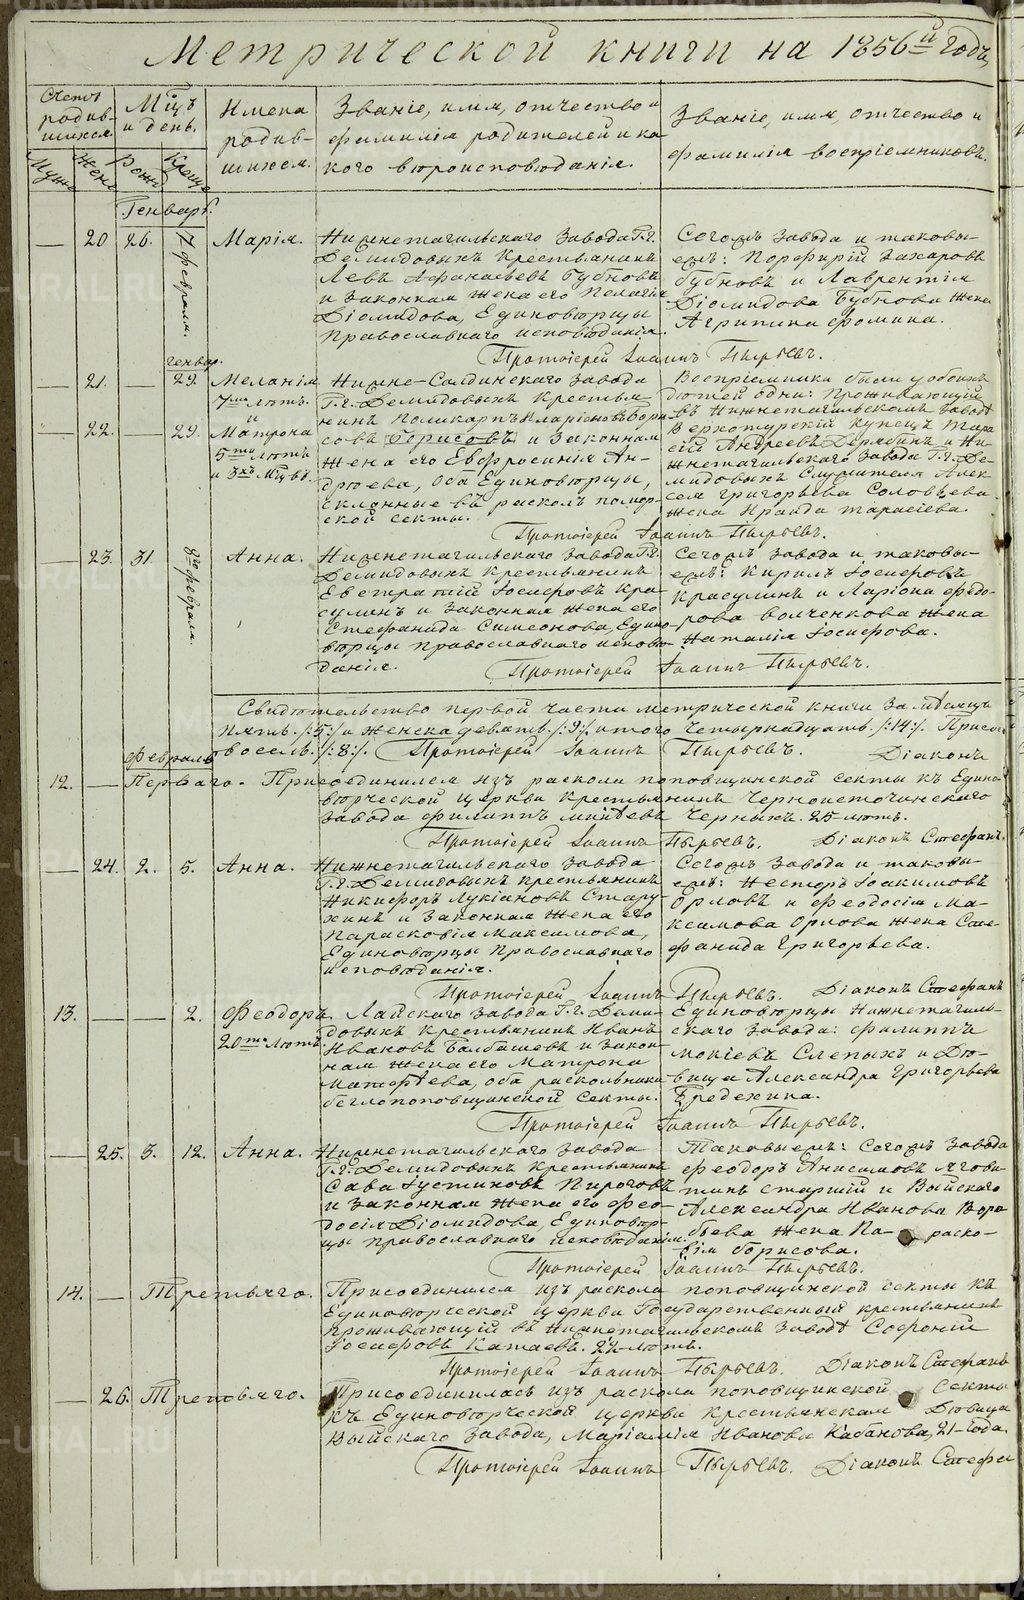 Метрической книги на 1856й годъ
Счетъ родив-шихся.
Мцъ и день.
Имена родив-шихся.
Званіе, имя, отчество и фамилія родителей и какого вѣроисповѣданія.
Званіе, имя, отчество и фамилія воспріемниковъ.
Муж.
Жен.
Рожд.
Крещ.
Генварь.
— 20 26. 7 февраля. Марія.
Нижнетагильскаго завода Г.г.
Демидовыхъ крестьянинъ
Левъ Афанасьевъ Бубновъ
и законная жена его Пелагія
Діомидова, Единовѣрцы
Православнаго исповѣданія.
Сегожъ завода и таковы-
ежъ: Порфирій Захаровъ
Бубновъ и Лаврентія
Діомидова Бубнова жена
Агрипина Фомина.
Протоіерей Іоаннъ Пырьевъ.
генвар.
— 21. — 29. Меланія
7ми лѣтъ.
и
— 22. — 29. Матрона
5ти лѣтъ
и 3хъ мцвъ.
Нижне-Салдинскаго завода
Г.г. Демидовыхъ крестья-
нинъ Поликарпъ Иларіоновъ Бори-
совъ Борисовъ и законная
жена его Евфросинія Ан-
дреева, оба Единовѣрцы,
склонные въ расколъ помор-
ской секты.
Воспріемники были у обоихъ
дѣтей одни: Проживающій
въ Нижнетагильскомъ заводѣ
Верхотурскій купецъ Тара-
сій Андреевъ Дерябинъ и Ни-
жнетагильскаго завода Г.г. Де-
мидовыхъ служителя Алек-
сея Григорьева Соловьева
жена Ираида Тарасіева.
Протоіерей Іоаннъ Пырьевъ.
— 23. 31. 8го февраля. Анна.
Нижнетагильскаго завода Г.г.
Демидовыхъ крестьянинъ
Евстратій Іосифовъ Кра-
сулинъ и законная жена его
Стефанида Симеонова, Едино-
вѣрцы православнаго исповѣ-
данія.
Сегожъ завода и таковы-
ежъ: Кирилъ Іосифовъ
Красулинъ и Ларіона Федо-
рова Волченкова жена
Наталія Іосифова.
Протоіерей Іоаннъ Пырьевъ.
Свидѣтельство первой части метрической книги за мѣсяцъ
пять ./:5:/. и женска девять ./:9:/. итого четырнадцать ./:14:/. Присое
восемь ./:8:/. Протоіерей Іоаннъ Пырьевъ. Діаконъ
Февраль
12. — Перваго. Присоединился изъ раскола поповщинской секты къ Едино-
вѣрческой церкви крестьянинъ Черноисточинскаго
завода Филиппъ Черныхъ. 25 лѣтъ.
Протоіерей Іоаннъ Пырьевъ. Діаконъ Стефанъ
— 24. 2. 5. Анна.
Нижнетагильскаго завода
Г.г. Демидовыхъ крестьянинъ
Никифоръ Лукіановъ Стару-
хинъ и законная жена его
Парасковія Максимова,
Единовѣрцы Православнаго
исповѣданія.
Сегожъ завода и таковы-
ежъ: Несторъ Іоакимовъ
Орловъ и Феодосія Ма-
ксимова Орлова жена Сте-
фанида Григорьева.
Протоіерей Іоаннъ Пырьевъ. Діаконъ Стефанъ
13. — — 2. Феодоръ.
20ти лѣтъ.
Лайскаго завода Г.г. Деми-
довыхъ крестьянинъ Иванъ
Ивановъ Балбашевъ и закон-
ная жена его Матрона
Матфѣева, оба раскольники
беглопоповщинской секты.
Единовѣрцы Нижнетагиль-
скаго завода: Филиппъ
Мокіевъ Слепыхъ и Дѣ-
вица Александра Григорьева
Бредехина.
Протоіерей Іоаннъ Пырьевъ.
— 25. 3. 12. Анна.
Нижнетагильскаго завода
Г.г. Демидовыхъ крестьянинъ
Сава Іустиновъ Пироговъ
и законная жена его Фео-
досія Діомидова, Единовѣр-
цы православнаго исповѣданія.
Таковыежъ: Сегожъ завода
Феодоръ Анисимовъ Ягови-
тинъ старшій и Выйскаго
Александра Иванова Воро-
бьева жена Па- раско-
вія Борисова.
Протоіерей Іоаннъ Пырьевъ.
14. — Третьяго. Присоединился изъ раскола поповщинской секты къ
Единовѣрческой церкви Государственный крестьянинъ
проживающій въ Нижнетагильскомъ заводѣ Софроній
Іосифовъ Катаевъ. 22 лѣтъ.
Протоіерей Іоаннъ Пырьевъ. Діаконъ Стефанъ
— 26. Третьяго. Присоединилась изъ раскола поповщинской секты
къ Единовѣрческой церкви крестьянская Дѣвица
Выйскаго завода, Маріамія Иванова Кабанова, 21-года.
Протоіерей Іоаннъ Пырьевъ. Діаконъ Стефан
METRIKI.GASO-URAL.RU